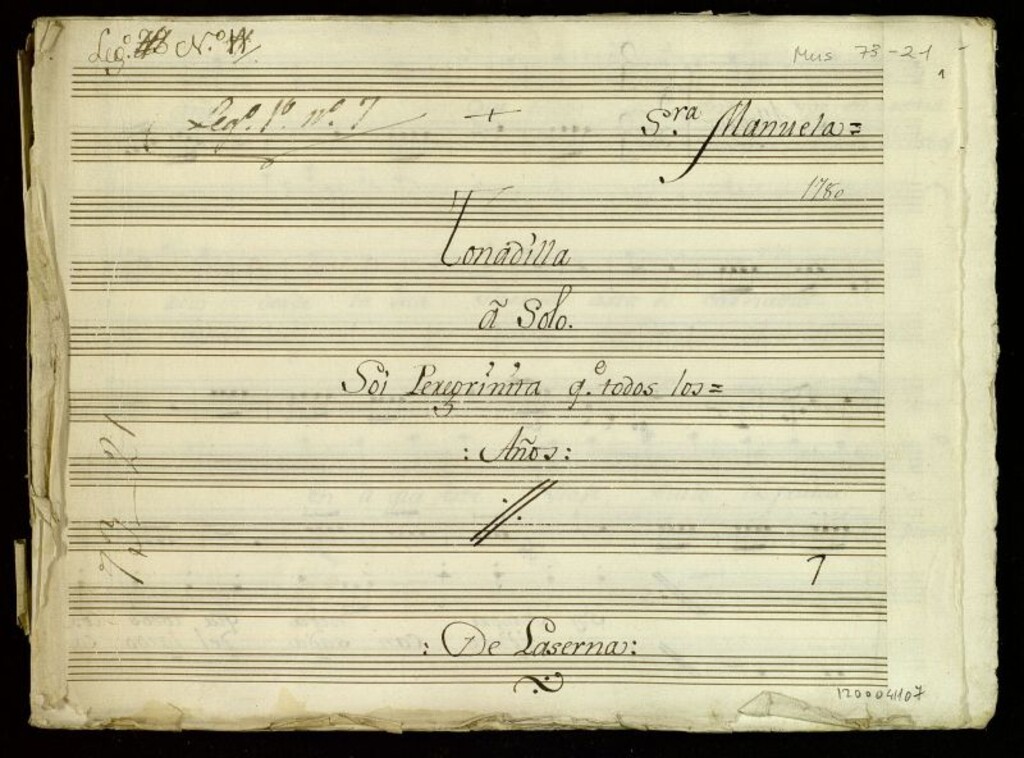 Leg.º N.º
Mus 73-21
1
Leg.º 1.º n.º 7
+
S.ra Manuela=
1780
Tonadilla
â Solo.
Soi Peregrinita q.e todos los=
: Años:
73-21
7
: De Laserna:
1200041107